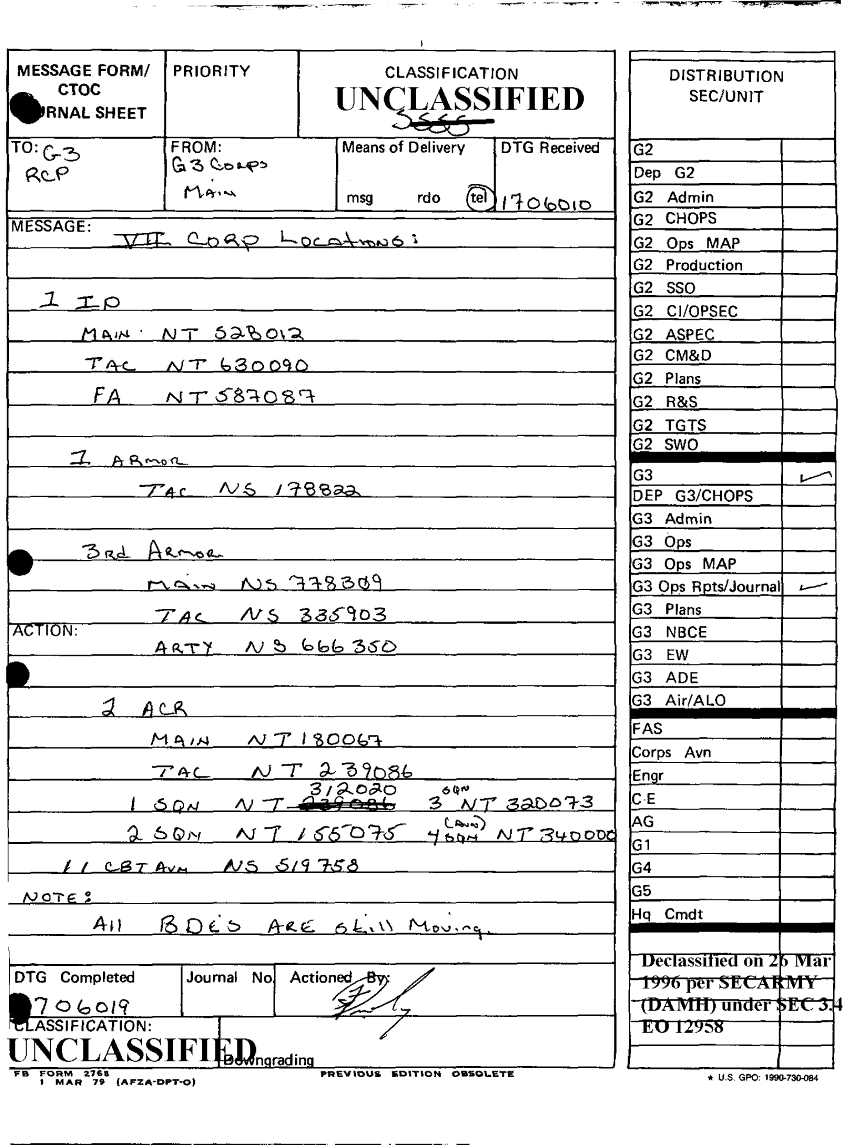 MESSAGE FORM/
CTOC
RNAL SHEET
PRIORITY
CLASSIFICATION
UNCLASSIFIED
TO: G3
RCP
FROM:
G3 Corps
MAIN
Means of Delivery
msg rdo tel
DTG Received
1706010
MESSAGE:
VII CORP LOCATIONS:
1 ID
MAIN NT 528012
TAC NT 630090
FA NT 587087
1 ARMOR
TAC NS 178822
3rd ARMOR
MAIN NS 778309
TAC NS 335903
ACTION:
ARTY NS 666350
2 ACR
MAIN NT 180067
TAC NT 239086
312020 SQN
1 SQN NT 239086 3 NT 320073
(AVN)
2 SQN NT 155075 4 SQN NT 340000
11 CBT AVN NS 519758
NOTE:
All BDE'S ARE still Moving.
DTG Completed
706019
Journal No.
Actioned By:
CLASSIFICATION:
UNCLASSIFIED
Downgrading
FB FORM 2768
1 MAR 79 (AFZA-DPT-O)
PREVIOUS EDITION OBSOLETE
DISTRIBUTION
SEC/UNIT
G2
Dep G2
G2 Admin
G2 CHOPS
G2 Ops MAP
G2 Production
G2 SSO
G2 CI/OPSEC
G2 ASPEC
G2 CM&D
G2 Plans
G2 R&S
G2 TGTS
G2 SWO
G3
DEP G3/CHOPS
G3 Admin
G3 Ops
G3 Ops MAP
G3 Ops Rpts/Journal
G3 Plans
G3 NBCE
G3 EW
G3 ADE
G3 Air/ALO
FAS
Corps Avn
Engr
C-E
AG
G1
G4
G5
Hq Cmdt
Declassified on 26 Mar
1996 per SECARMY
(DAMH) under SEC 3.4
EO 12958
★ U.S. GPO: 1990-730-084